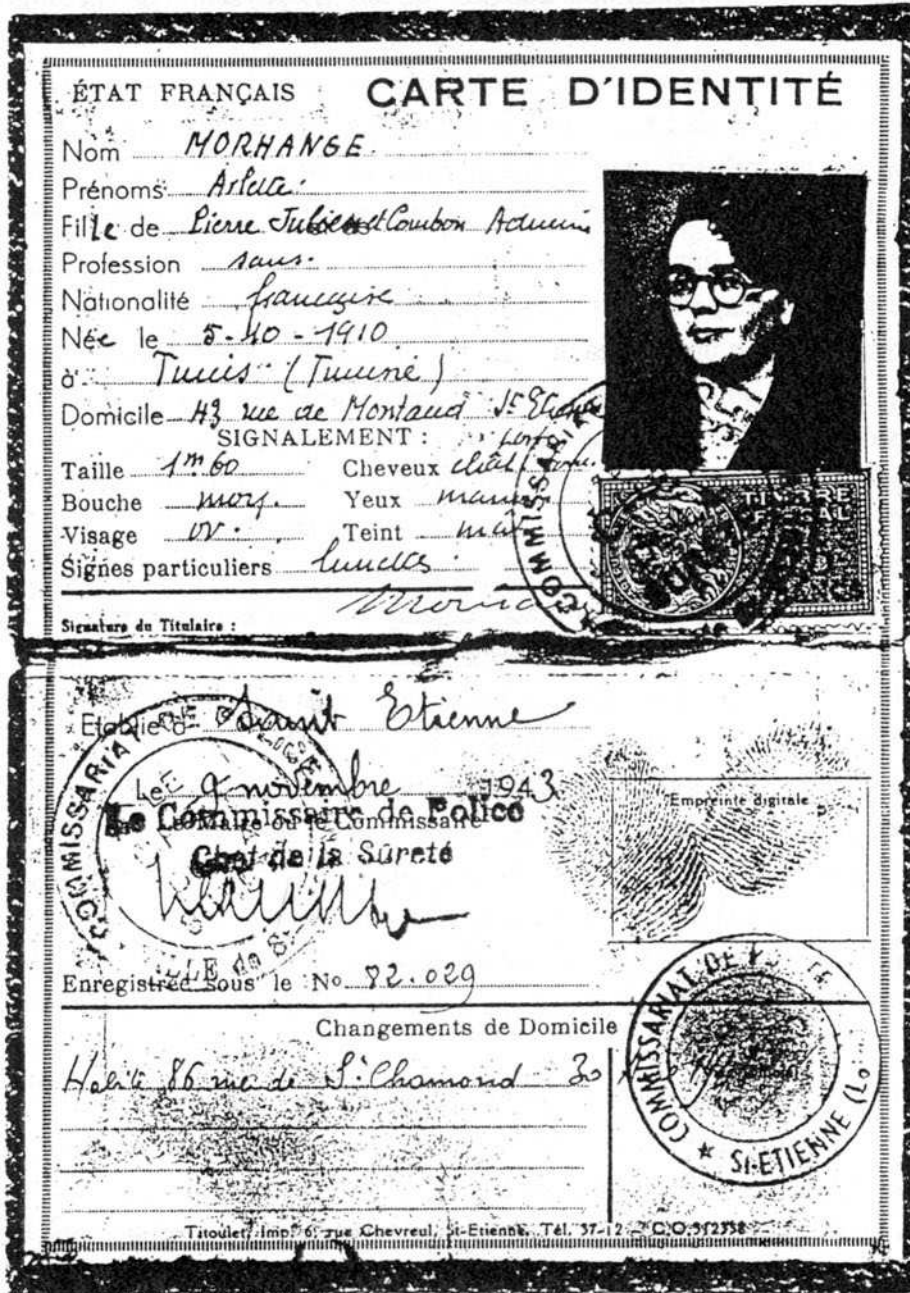 ÉTAT FRANÇAIS CARTE D'IDENTITÉ
Nom MORHANGE
Prénoms Arlette
Fille de Pierre Julien et Coulbon
Profession sans.
Nationalité française
Née le 5-10-1910
à Tunis (Tunisie)
Domicile 43 rue de Montaud St Etienne
SIGNALEMENT :
Taille 1m60 Cheveux chât.
Bouche moy. Yeux
Visage ov. Teint
Signes particuliers lunettes
Signature du Titulaire :
Etablie à Saint Etienne
Le 9 novembre 1943
Le Maire ou le Commissaire
Le Commissaire de Police
Chef de la Sûreté
Empreinte digitale
Enregistrée sous le No 82.029
Changements de Domicile
Habite 86 rue de St Chamond
COMMISSARIAT DE
ST-ETIENNE
COMMISSARIAT
TIMBRE
FISCAL
Titoulet, Imp. 6, rue Chevreul, St-Etienne, Tél. 37-12 - C.O. 312358